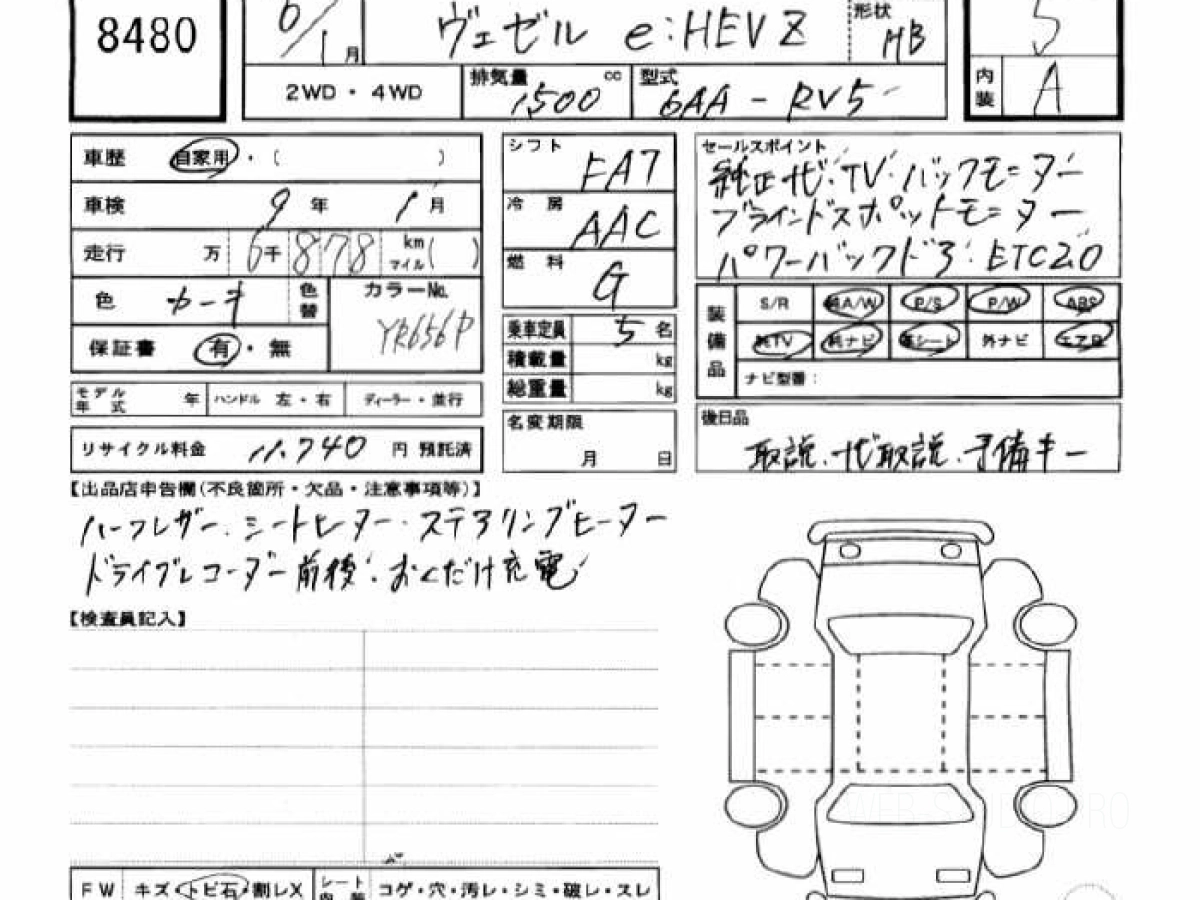 8480
6/1月
ヴェゼル e:HEV Z
形状 HB
5
2WD・4WD
排気量 1500 cc
型式 6AA-RV5
内装 A
車歴 自家用・( )
車検 9年 1月
走行 万6千878 km マイル( )
色 カーキ 色替
カラーNo. YR656P
保証書 有・無
モデル年式 年 ハンドル 左・右 ディーラー・並行
リサイクル料金 11.740 円 預託済
シフト FAT
冷房 AAC
燃料 G
乗車定員 5名
積載量 kg
総重量 kg
名変期限
月 日
セールスポイント
純正ナビ・TV・バックモニター
ブラインドスポットモニター
パワーバックドア・ETC2.0
装備品
S/R 純A/W P/S P/W ABS
純TV 純ナビ 革シート 外ナビ エアB
ナビ型番:
後日品
取説、ナビ取説、予備キー
【出品店申告欄(不良箇所・欠品・注意事項等)】
ハーフレザー・シートヒーター・ステアリングヒーター
ドライブレコーダー前後・おくだけ充電
【検査員記入】
FW キズ・トビ石・割レX
シート内装 コゲ・穴・汚レ・シミ・破レ・スレ